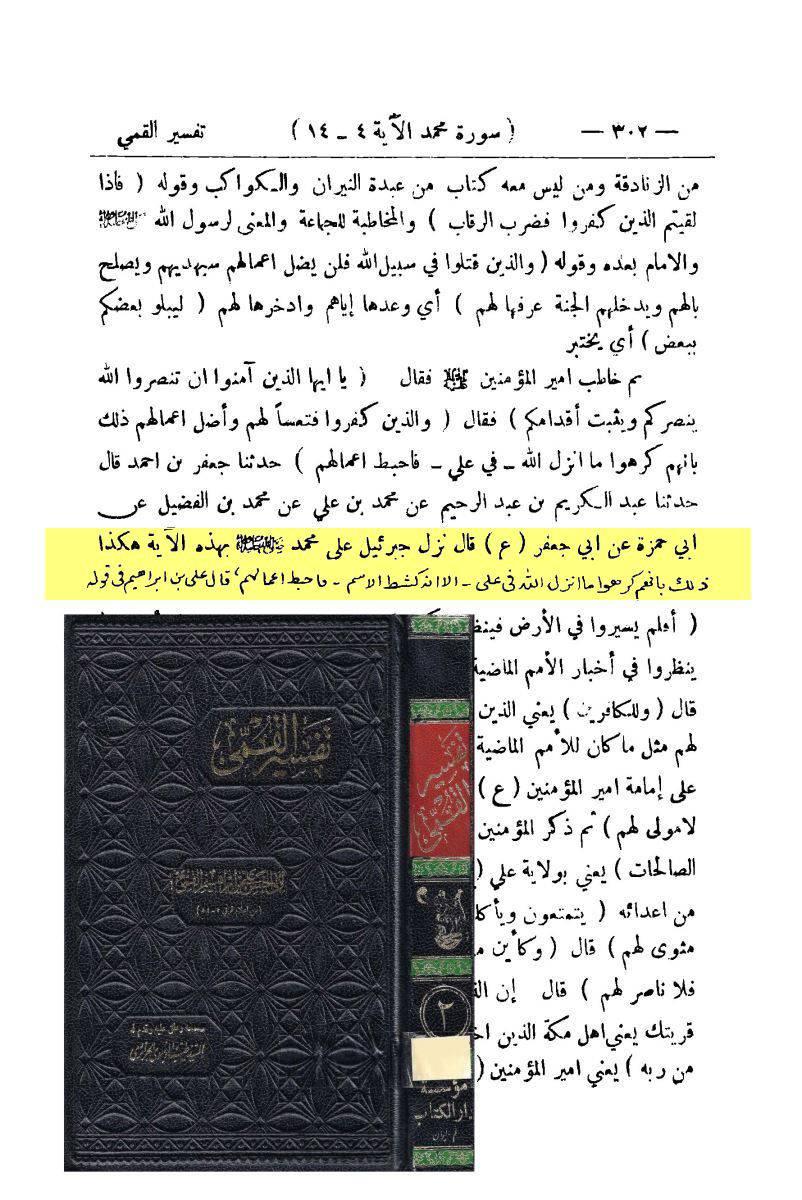 — ٣٠٢ — ( سورة محمد الآية ٤ ـ ١٤ ) تفسير القمي
من الزنادقة ومن ليس معه كتاب من عبدة النيران والكواكب وقوله ( فاذا
لقيتم الذين كفروا فضرب الرقاب ) والمخاطبة للجماعة والمعنى لرسول الله ﷺ
والامام بعده وقوله ( والذين قتلوا في سبيل الله فلن يضل اعمالهم سيهديهم ويصلح
بالهم ويدخلهم الجنة عرفها لهم ) أي وعدها إياهم وادخرها لهم ( ليبلو بعضكم
ببعض ) أي يختبر
ثم خاطب امير المؤمنين فقال ( يا ايها الذين آمنوا ان تنصروا الله
ينصركم ويثبت أقدامكم ) فقال ( والذين كفروا فتعساً لهم وأضل اعمالهم ذلك
بانهم كرهوا ما انزل الله ـ في علي ـ فاحبط اعمالهم ) حدثنا جعفر بن احمد قال
حدثنا عبد الكريم بن عبد الرحيم عن محمد بن علي عن محمد بن الفضيل عن
ابي حمزة عن ابي جعفر ( ع ) قال نزل جبرئيل على محمد ﷺ بهذه الآية هكذا
ذلك بانهم كرهوا ما انزل الله في علي ـ الا انه كشط الاسم ـ فاحبط اعمالهم، قال علي بن ابراهيم في قوله
( أفلم يسيروا في الأرض
ينظروا في أخبار الأمم الماضية
قال ( وللكافرين ) يعني الذين
لهم مثل ما كان للأمم الماضية
على إمامة امير المؤمنين ( ع )
لا مولى لهم ) ثم ذكر المؤمنين
الصالحات ) يعني بولاية علي (
من اعدائه ( يتمتعون ويأكلـ
مثوى لهم ) قال ( وكأين مـ
فلا ناصر لهم ) قال إن
قريتك يعني اهل مكة الذين
من ربه ) يعني امير المؤمنين (
تفسير القمي
تفسير القمي
٢
مؤسسة
دار الكتاب